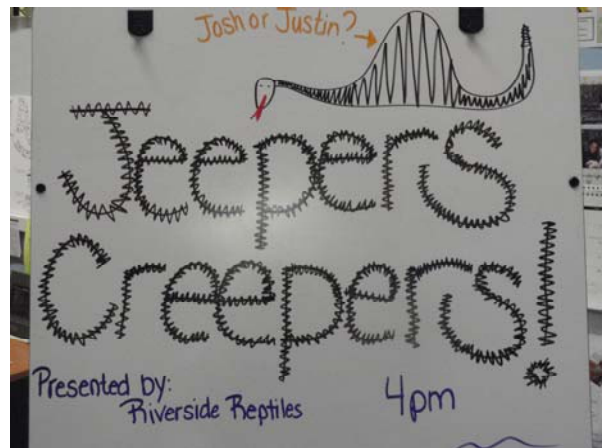 Josh or Justin?
Jeepers
Creepers!
Presented by:
Riverside Reptiles
4pm